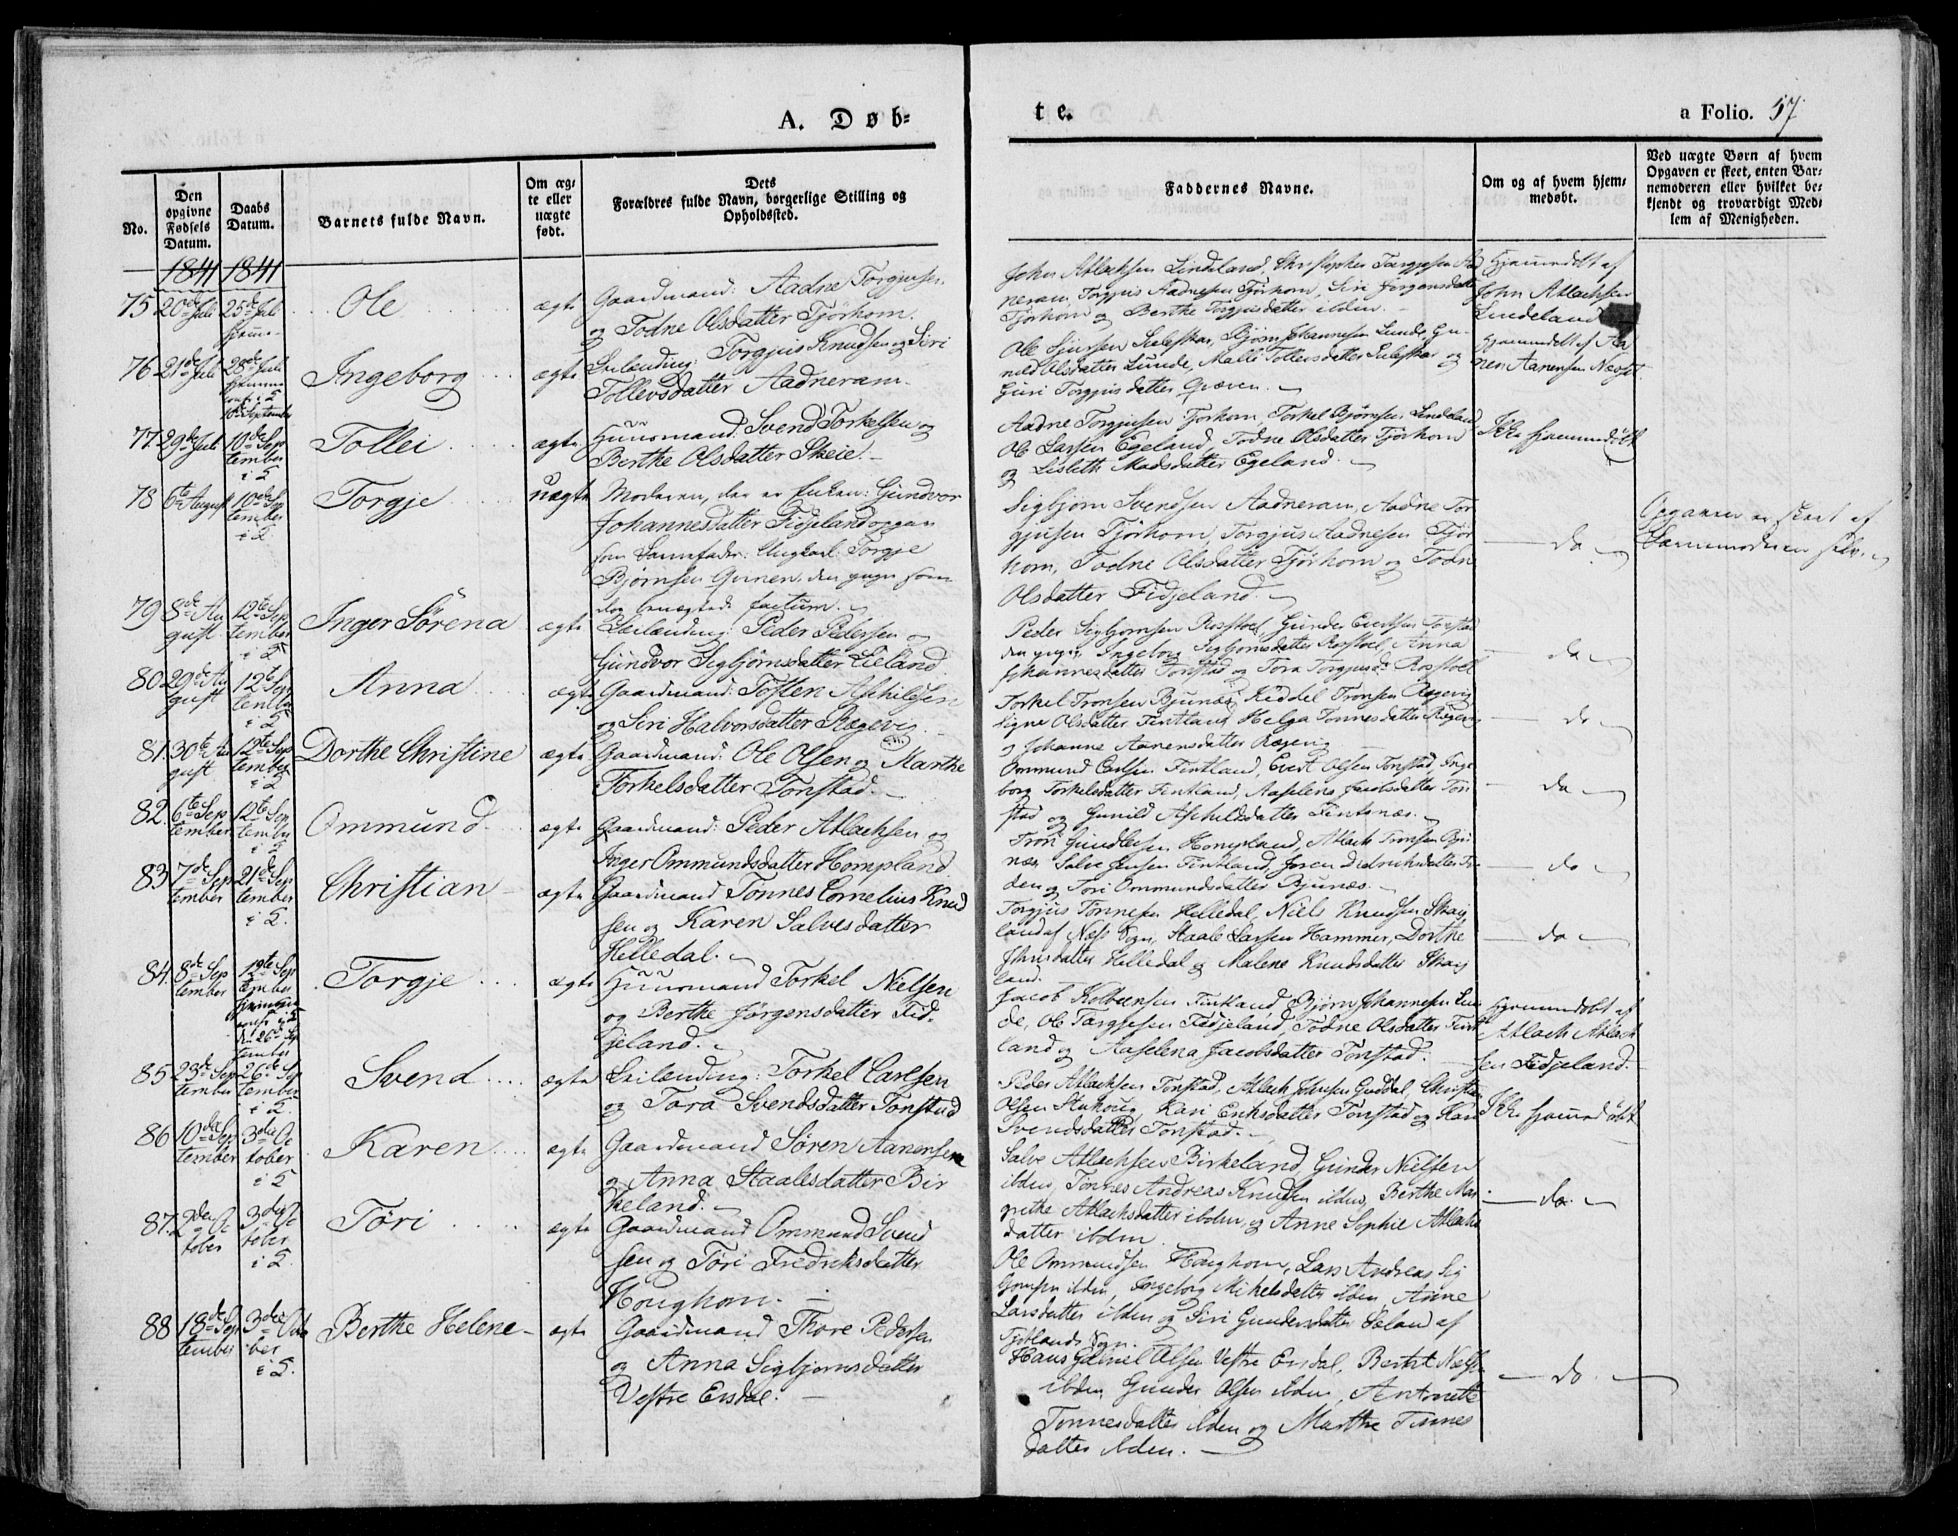 A. Døb-
te.
a Folio. 57
No.
Den opgivne Fødsels Datum.
Daabs Datum.
Barnets fulde Navn.
Om ægte eller uægte født.
Dets Forældres fulde Navn, borgerlige Stilling og Opholdssted.
Faddernes Navne.
Om og af hvem hjemmedøbt.
Ved uægte Børn af hvem Opgaven er skeet, enten Barnemoderen eller hvilket bekjendt og troværdigt Medlem af Menigheden.
1841 1841
75 20de Juli 25de Juli
Ole
ægte
Gaardmand: Aadne Torgjusen
og Todne Olsdatter Tjørhom.
John Atlachsen Lindeland, Christopher Torgjusen Aad
neram, Torgjus Aadnesen Tjørhom, Siri Jørgensdatter
Tjørhom og Berthe Torgjusdatter ibden.
Hjemmedøbt af
John Atlachsen
Lindeland
76 21de Juli 28de Juli
Hjemme
conf. i S
10de September
Ingeborg
ægte
Leilænding: Torgjus Knudsen og Siri
Tollevsdatter Aadneram.
Ole Sjursen Suleskar, Bjørn Johannesen Lunde, Gu-
nild Olsdatter Lunde, Malli Tollevsdatter Suleskar og
Guri Torgjusdatter Qvæven.
77 29de Juli 10de Sep
tember
i S
Tollei
ægte
Huusmand: Svend Torkelsen og
Berthe Olsdatter Skeie.
Aadne Torgjusen Tjørhom, Torkel Bjørnsen Lindeland
Ole Larsen Egeland, Todne Olsdatter Tjørhom
og Lisbeth Madsdatter Egeland.
Ikke hjemmedøbt
78 6te August 10de Sep
tember
i S
Torgje
uægte
Moderen, der er Enken: Gundvor
Johannesdatter Fidjeland opgav
som Barnefader: Ungkarl Torgje
Bjørnsen Qvinen, den gugn som
dog benegtede factum.
Sigbjørn Svendsen Aadneram, Aadne Tor
gjusen Tjørhom, Torgjus Aadnesen Tjør
hom, Todne Olsdatter Tjørhom og Todne
Olsdatter Fidjeland.
do
Opgaven er skeet af
Barnemoderen selv.
79 8de Au
gust 12te Sep
tember
i S
Inger Sörena
ægte
Leilænding: Peder Pedersen og
Gundvor Sigbjørnsdatter Eieland
Peder Sigbjørnsen Rosstøl, Gunder Evertsen Tonstad
den yngre, Ingeborg Sigbjørnsdatter Rosstøl, Anna
Johannesdatter Tonstad og Tora Torgjusd: Rosstøl
do
80 29de Au
gust 12te Sep
tember
i S
Anna
ægte
Gaardmand: Tosten Aschildsen
og Siri Halvorsdatter Rægevig.
Torkel Tronsen Bjunæs, Kiddel Tronsen Rægevig
Signe Olsdatter Fintland, Helga Tønnesdatter Rægevig
og Johanne Aanensdatter Rægevig
do
81. 30te Au
gust 12te Sep
tember
i S
Dorthe Christine
ægte
Gaardmand: Ole Olsen og Marthe
Torkelsdatter Tonstad.
Ommund Carlsen Fintland, Evert Olsen Tonstad, Inge
borg Torkelsdatter Fintland, Aaselena Jacobsdatter Ton
stad og Gunild Aschildsdatter Fintsnæs.
do
82. 6te Sep
tember 12te Sep
tember
i S
Ommund
ægte
Gaardmand: Peder Atlachsen og
Inger Ommundsdatter Hompland
Tron Gundersen Hompland, Atlach Tronsen Bju
næs, Salve Jensen Fintland,
den og Tori Ommundsdatter Bjunæs.
do
83 7de Sep
tember 21de Sep
tember
i S.
Christian
ægte
Gaardmand Tønnes Cornelius Knud
sen og Karen Salvesdatter
Helledal.
Torgjus Tønnesen Helledal, Niels Knudsen Skaij
land af Næs Sogn, Staale Larsen Hammer, Dorthe
Helledal og Malene Knudsdatter Skaij
land.
do
84. 8de Sep
tember 12te Sep
tember
i S
d. 26de Sep
tember
Torgje
ægte
Huusmand Torkel Nielsen
og Berthe Jørgensdatter Fid-
jeland.
Jacob Kolbensen Fintland, Bjørn Johannesen Lun
de, Ole Torgjusen Fidjeland, Todne Olsdatter Fint
land og Aaselena Jacobsdatter Tonstad.
Hjemmedøbt af
Atlach Atlach
sen Fidjeland.
85 23de Sep
tember 26de Sep
tember
i S.
Svend
ægte
Leilænding: Torkel Carlsen
og Tora Svendsdatter Tonstad
Peder Atlachsen Tonstad, Atlach Jensen Guddal, Christian
Olsen Stakoug, Kari Eriksdatter Tonstad og Kari
Svendsdatter Tonstad.
Ikke hjemmedøbt
86 10de Sep
tember 3die Oc
tober
i S
Karen
ægte
Gaardmand Søren Aanensen
og Anna Staalesdatter Bir
keland.
Salve Atlachsen Birkeland, Gunder Nielsen
ibden, Tønnes Andreas Knudsen ibden, Berthe Mar
grethe Atlachsdatter ibden, og Anne Sophie Atlachs
datter ibden.
do
87. 2den Oc
tober 3die Oc
tober
i S.
Tøri
ægte
Gaardmand Ommund Svend
sen og Tøri Fredriksdatter
Houghom.
Ole Ommundsen Houghom, Lars Andreas Sig
bjørnsen ibden, Ingeborg Mikelsdatter ibden, Anne
Larsdatter ibden og Siri Gundersdatter Øeland af
Tjotlands Sogn.
88 18de Sep
tember 3die Octo
ber
i S.
Berthe Helene
ægte
Gaardmand Thore Pedersen
og Anna Sigbjørnsdatter
Vestre Ersdal.
Hans Gabriel Olsen Vestre Ersdal, Berthe Niels
ibden, Gunder Olsen ibden, Antonette
Tønnesdatter ibden og Marthe Tønnes
datter ibden.
do.